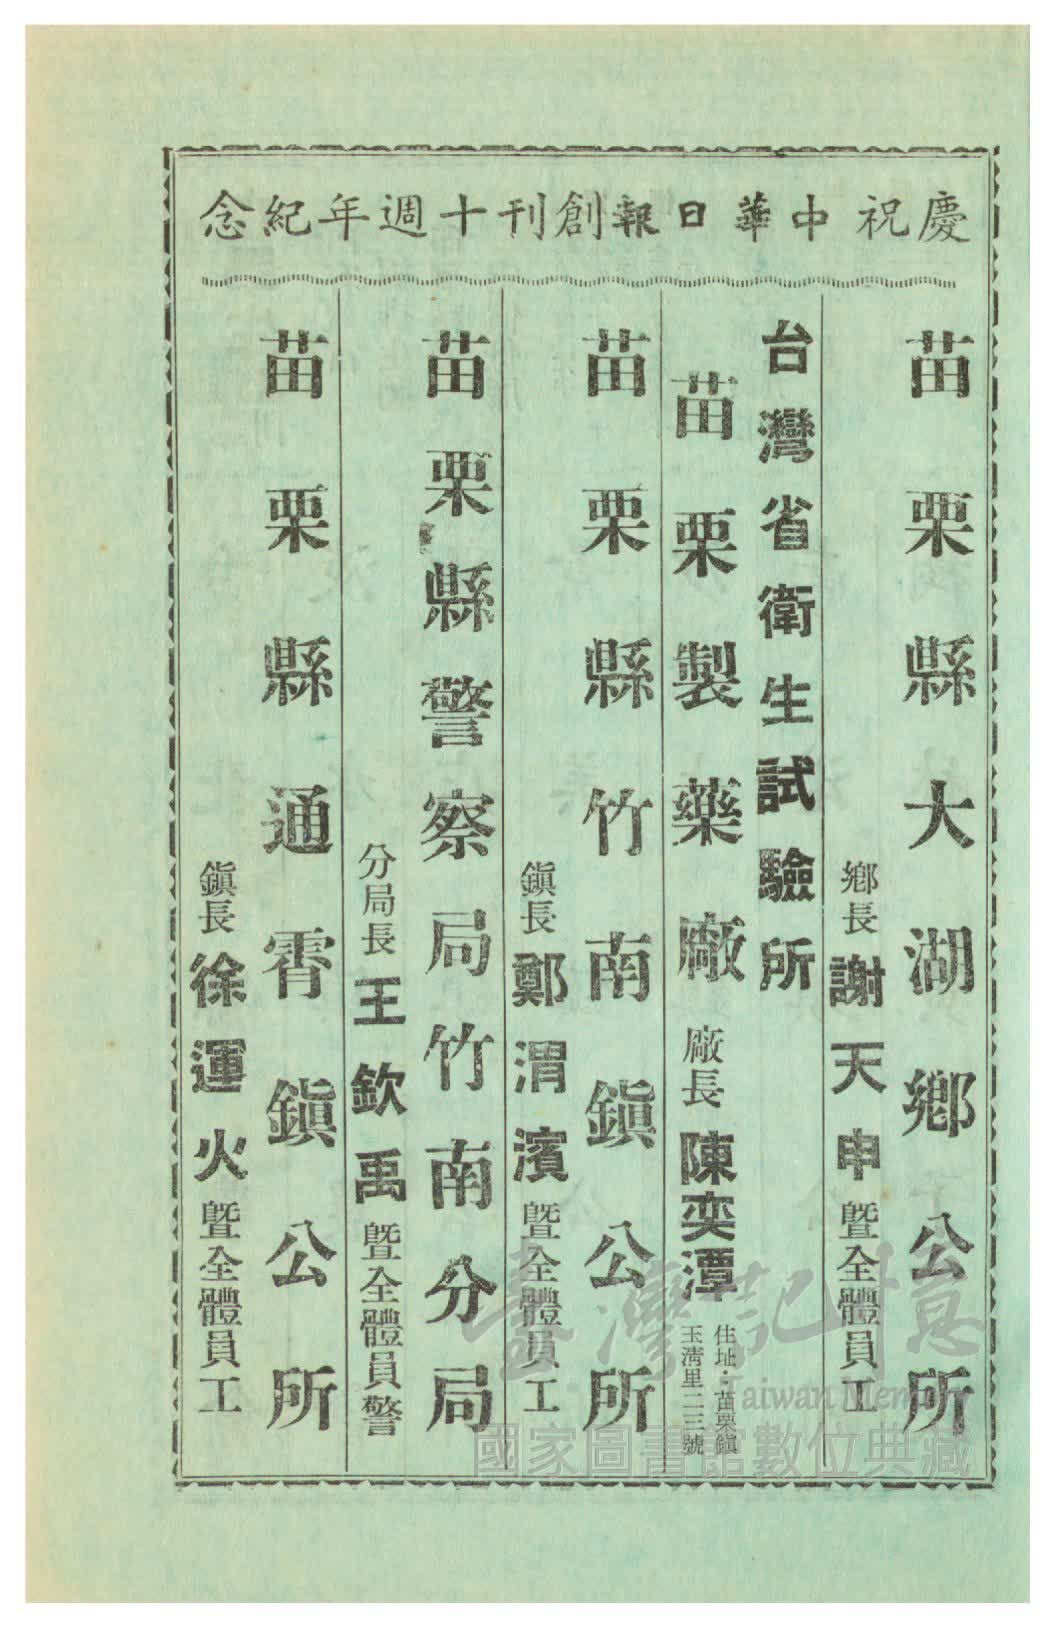 慶祝中華日報創刊十週年紀念
苗栗縣大湖鄉公所
鄉長 謝天申 暨全體員工
台灣省衛生試驗所
苗栗製藥廠 廠長 陳奕潭
住址：苗栗鎮
玉清里二三號
苗栗縣竹南鎮公所
鎮長 鄭渭濱 暨全體員工
苗栗縣警察局竹南分局
分局長 王欽禹 暨全體員警
苗栗縣通霄鎮公所
鎮長 徐運火 暨全體員工
臺灣記憶
Taiwan Memory
國家圖書館數位典藏